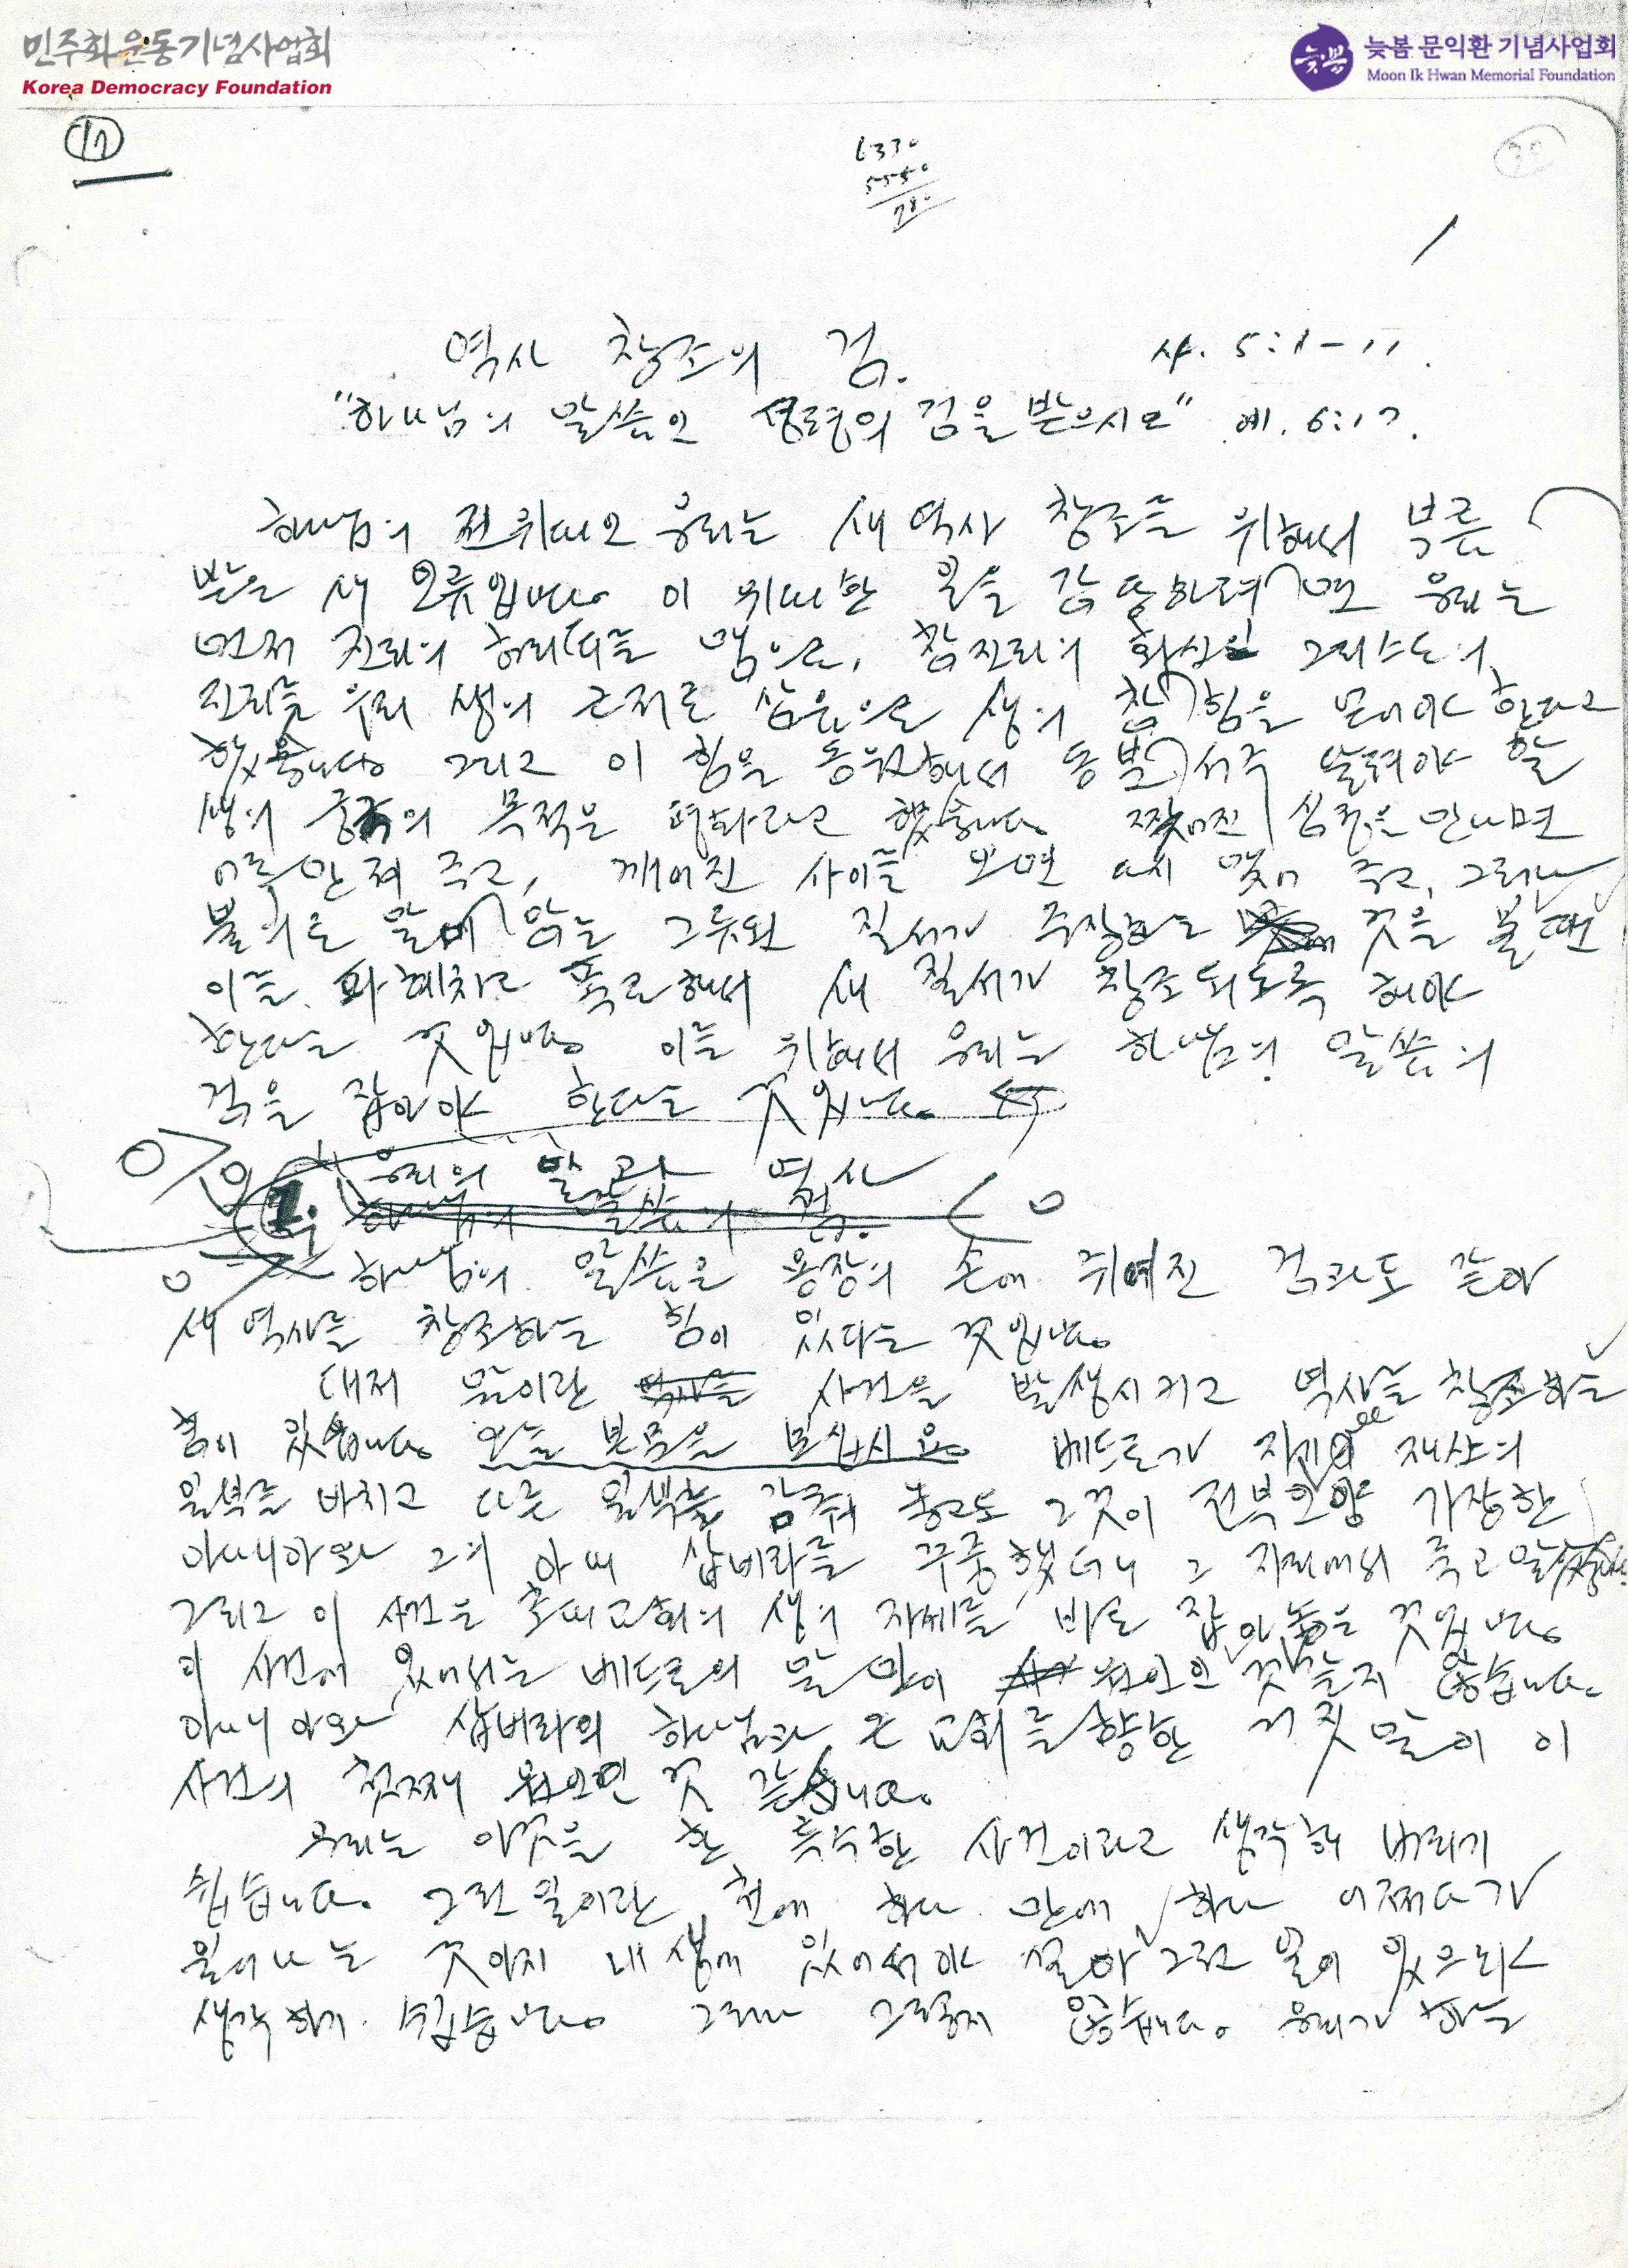 민주화운동기념사업회
Korea Democracy Foundation
늦봄 문익환 기념사업회
Moon Ik Hwan Memorial Foundation
17
6330
5550
780
역사 창조의 검. 사. 5:1-11.
"하나님의 말씀인 성령의 검을 받으시오" 에. 6:17.
하나님의 전위대인 우리는 새 역사 창조를 위해서 부름
받은 새 인류입니다. 이 위대한 일을 감당하려면 우리는
먼저 진리의 허리띠를 맴으로, 참 진리의 화신인 그리스도의
진리를 우리 생의 근저로 삼음으로 생의 참 힘을 얻어야 한다고
했습니다. 그리고 이 힘을 동원해서 동분서주 달려야 할
생의 목적은 평화라고 했습니다. 찢어진 심정을 만나면
어루만져 주고, 깨어진 사이를 보면 다시 맺어 주고, 그러나
불의로 말미암은 그릇된 질서가 주장하는 것을 볼 땐
이를 파헤치고 폭로해서 새 질서가 창조되도록 해야
한다는 것입니다. 이를 위해서 우리는 하나님의 말씀의
검을 잡아야 한다는 것입니다.
우리의 말과 역사
1. 하나님의 말씀의 검.
하나님의 말씀은 용장의 손에 쥐여진 검과도 같아
새 역사를 창조하는 힘이 있다는 것입니다.
대저 말이란 사건을 발생시키고 역사를 창조하는
힘이 있습니다. 오늘 본문을 보십시요. 베드로가 자기 재산의
일부를 바치고 다른 일부를 감춰 놓고도 그것이 전부인양 가장한
아나니아와 그의 아내 삽비라를 꾸중했더니 그 자리에서 죽고 말았습니다.
그리고 이 사건은 초대교회의 생의 자세를 바로 잡아 놓은 것입니다.
이 사건에 있어서는 베드로의 말만이 원인인 것 같지 않습니다.
아나니아와 삽비라의 하나님과 온 교회를 향한 거짓말이 이
사건의 첫째 원인인 것 같습니다.
우리는 이것을 한 특수한 사건이라고 생각해 버리기
쉽습니다. 그런 일이란 천에 하나 만에 하나 어쩌다가
일어나는 것이지 내 생에 있어서야 설마 그런 일이 있으리라
생각하기 쉽습니다. 그러나 그렇지 않습니다. 우리가 하는